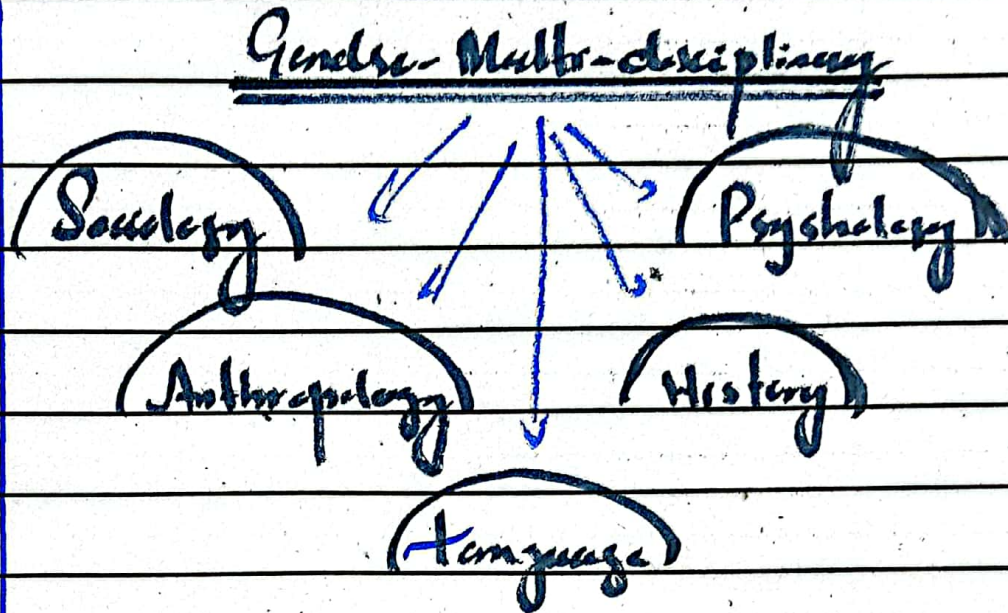 Gender - Multi-disciplinary
Sociology
Psychology
Anthropology
History
Language